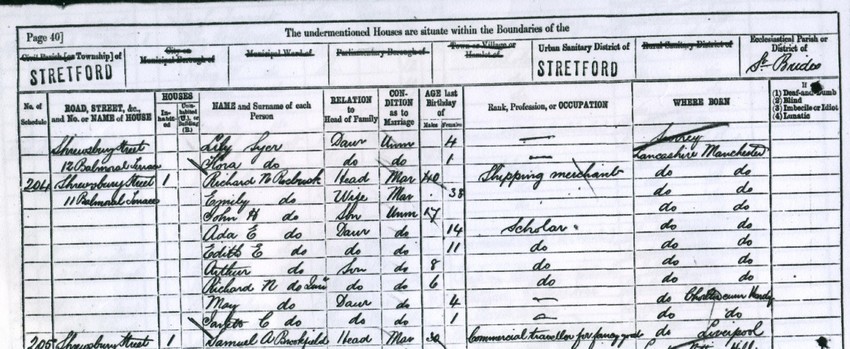 Page 40] The undermentioned Houses are situate within the Boundaries of the
Civil Parish [or Township] of STRETFORD City or Municipal Borough of Municipal Ward of Parliamentary Borough of Town or Village or Hamlet of Urban Sanitary District of STRETFORD Rural Sanitary District of Ecclesiastical Parish or District of St Brides
No. of Schedule ROAD, STREET, &c., and No. or NAME of HOUSE HOUSES Inhabited Uninhabited (U.), or Building (B.) NAME and Surname of each Person RELATION to Head of Family CONDITION as to Marriage AGE last Birthday of Males Females Rank, Profession, or OCCUPATION WHERE BORN If (1) Deaf-and-Dumb (2) Blind (3) Imbecile or Idiot (4) Lunatic
Shrewsbury Street Lily Daur Unm 4 — Surrey
12 Balmoral Terrace Flora do do do 1 — Lancashire Manchester
204 Shrewsbury Street 1 Richard N Head Mar 40 Shipping merchant do do
11 Balmoral Terrace Emily do Wife Mar 38 do do
John H do Son Unm 17 do do
Ada E do Daur do 14 Scholar do do
Edith E do do do 11 do do do
Arthur do Son do 8 do do do
Richard N do do do 6 do do do
May do Daur do 4 — do Chorlton cum Hardy
C do do do 1 — do do
205 Shrewsbury Street 1 Samuel A Brookfield Head Mar 30 Commercial traveller for fancy goods do Liverpool